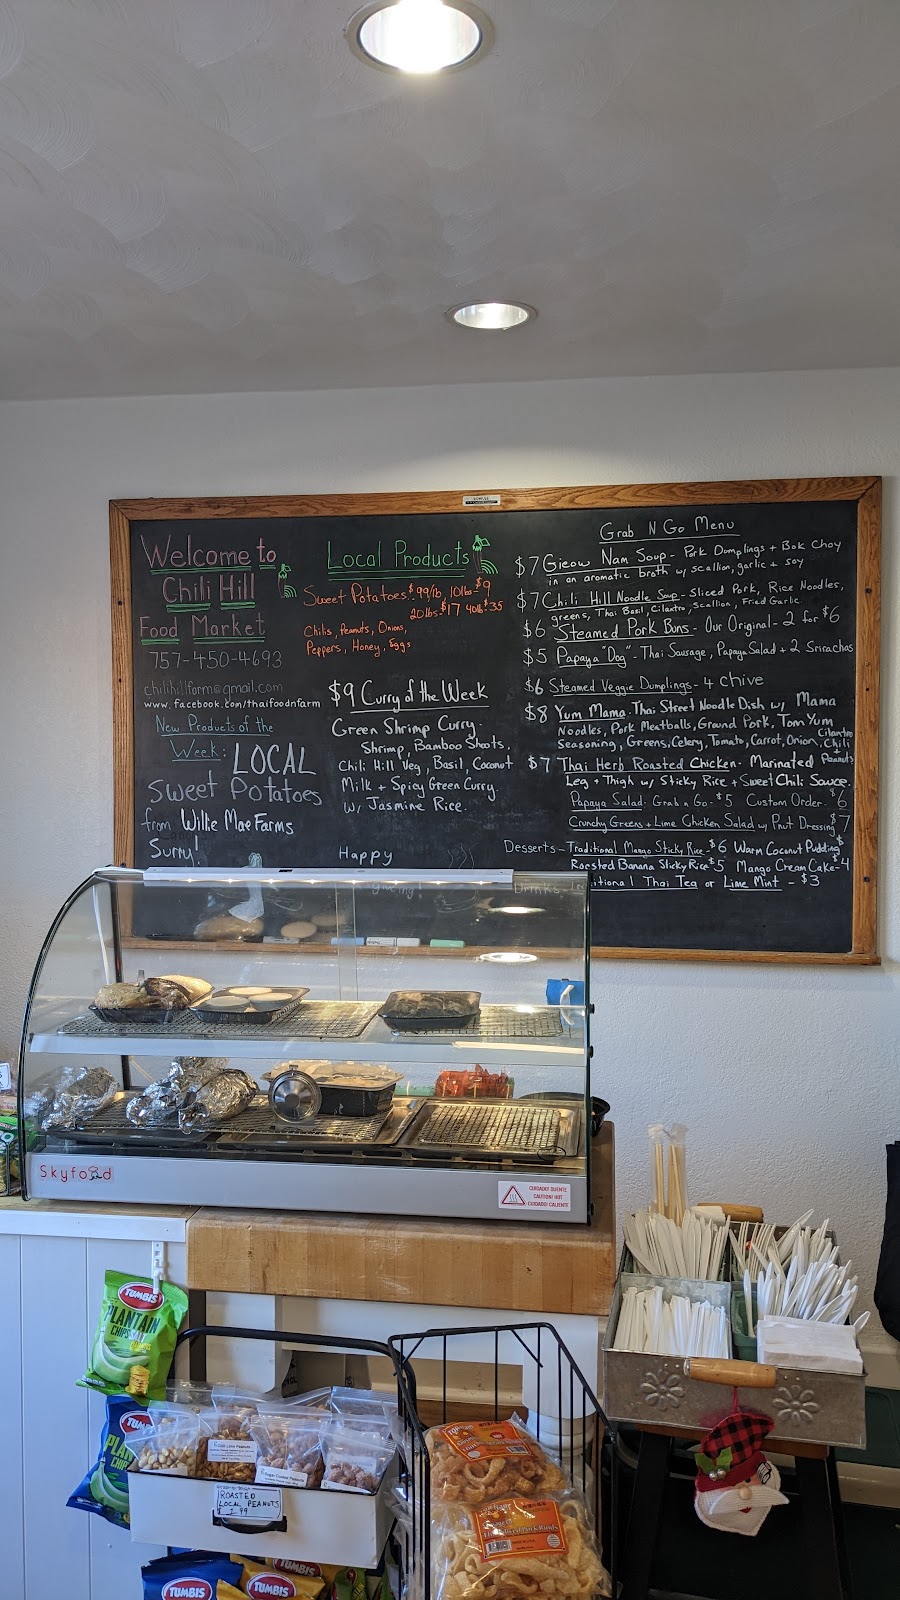 Welcome to
Chili Hill
Food Market
757-450-4693
chilihillfarm@gmail.com
www.facebook.com/thaifoodnfarm
New Products of the
Week: LOCAL
Sweet Potatoes
from Willie Mae Farms
Surry!
Local Products
Sweet Potatoes $.99/lb, 10lbs-$9
20lbs-$17 40lb $35
Chilis, Peanuts, Onions,
Peppers, Honey, Eggs
$9 Curry of the Week
Green Shrimp Curry-
Shrimp, Bamboo Shoots,
Chili Hill Veg, Basil, Coconut
Milk + Spicy Green Curry
w/ Jasmine Rice.
Happy
Grab N Go Menu
$7 Gieow Nam Soup - Pork Dumplings + Bok Choy
in an aromatic broth w/ scallion, garlic + soy
$7 Chili Hill Noodle Soup - Sliced Pork, Rice Noodles,
greens, Thai Basil, Cilantro, Scallion, Fried Garlic
$6 Steamed Pork Buns - Our Original - 2 for $6
$5 Papaya "Dog" - Thai Sausage, Papaya Salad + 2 Srirachas
$6 Steamed Veggie Dumplings - 4 chive
$8 Yum Mama Thai Street Noodle Dish w/ Mama
Noodles, Pork Meatballs, Ground Pork, Tom Yum
Seasoning, Greens, Celery, Tomato, Carrot, Onion, Cilantro, Chili + Peanuts
$7 Thai Herb Roasted Chicken - Marinated
Leg + Thigh w/ Sticky Rice + Sweet Chili Sauce.
Papaya Salad: Grab n Go - $5 Custom Order - $6
Crunchy Greens + Lime Chicken Salad w/ Pnut Dressing $7
Desserts - Traditional Mango Sticky Rice - $6 Warm Coconut Pudding $
Roasted Banana Sticky Rice $5 Mango Cream Cake - 4
Drinks
itional Thai Tea or Lime Mint - $3
Skyfood
CUIDADO! CALIENTE
CAUTION! HOT
TUMBIS
PLANTAIN
CHIPS
TUMBIS
Chili Lime Peanuts
Sugar Coated Peanuts
ROASTED
LOCAL PEANUTS
$ 1.99
TUMBIS
TUMBIS